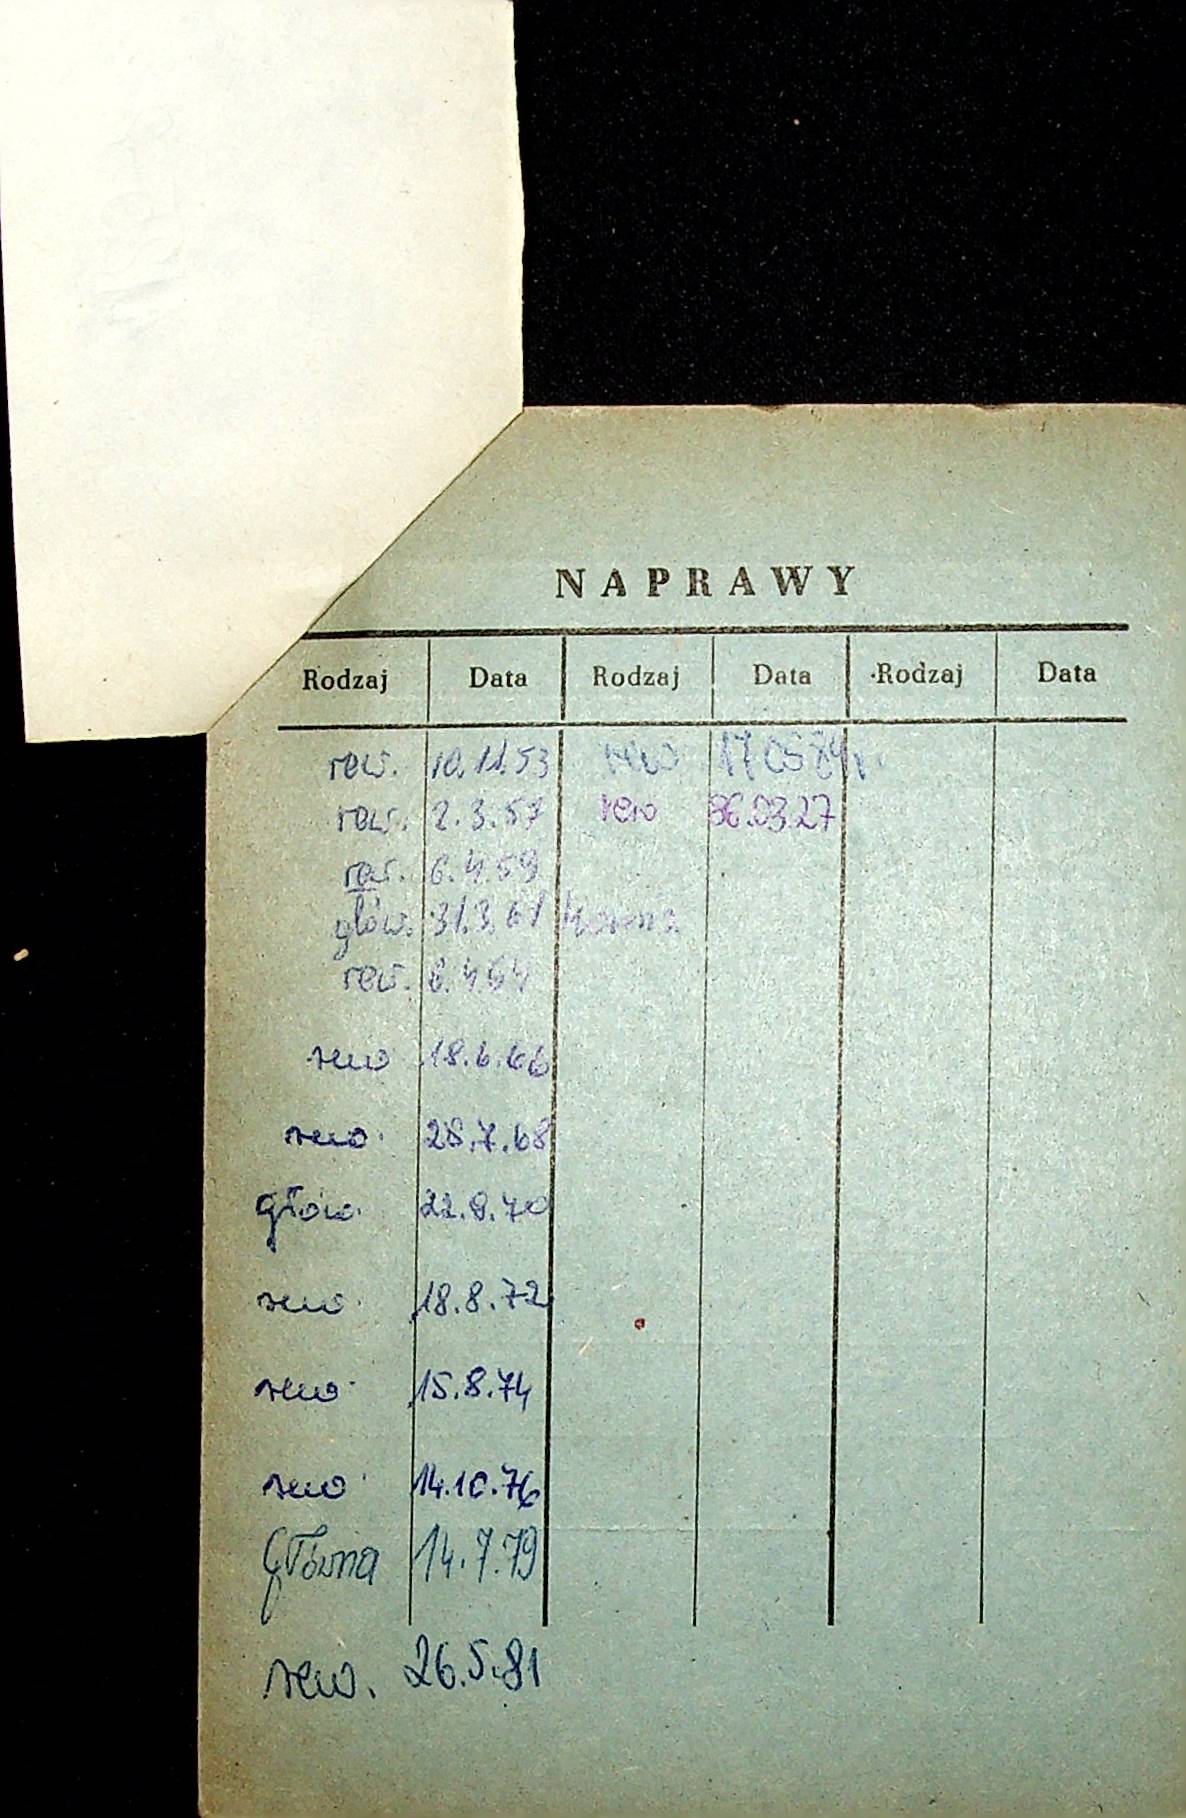 NAPRAWY
Rodzaj Data Rodzaj Data Rodzaj Data
rew. 10.11.53 rew 17 05 84r.
rew. 2.3.57 rew 86.03.27
rew. 6.4.59
głów. 31.3.61
rew. 6.4.64
rew 18.6.66
rew. 25.7.68
głów. 22.8.70
rew. 18.8.72
rew. 15.8.74
rew. 14.10.76
Główna 14.7.79
rew. 26.5.81